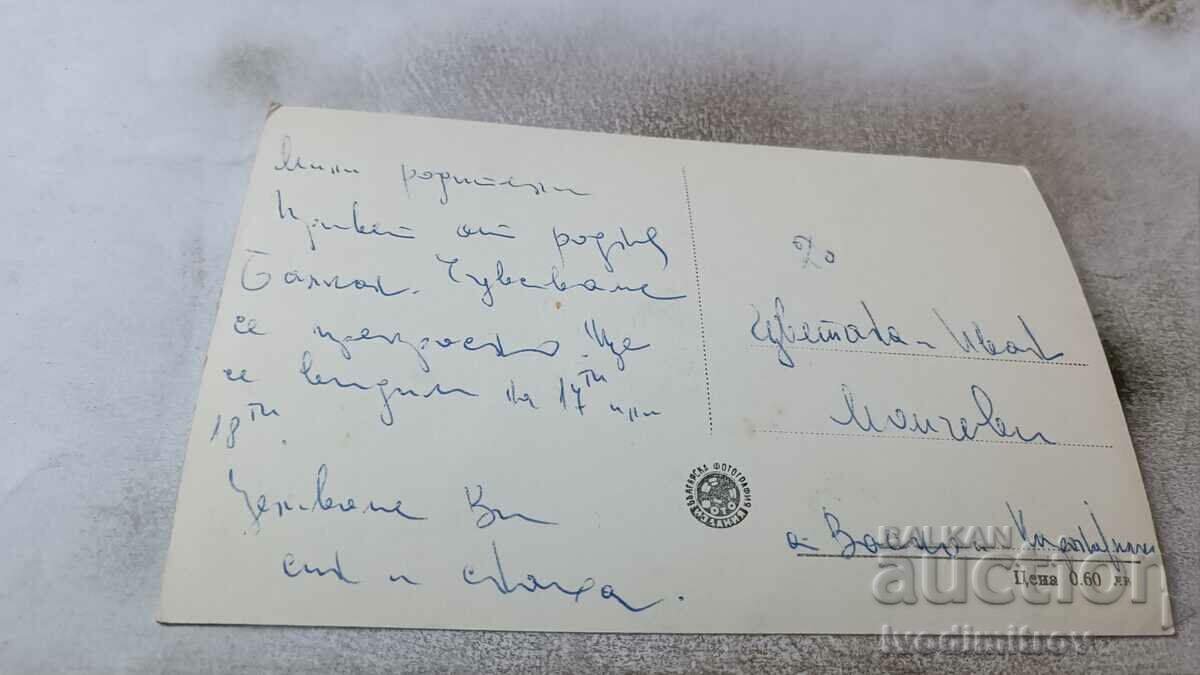 Мили родители
Привет от родния
Балкан. Чувстваме
се прекрасно. Ще
се видим на 17ти или
18ти.
Целуваме Ви
син и снаха.
До
Цветана и Иван
Мончеви
БЪЛГАРСКА ФОТОГРАФИЯ
ФОТО
ИЗДАНИЯ
Цена 0.60 лв
BALKAN
auction
Ivodimitrov